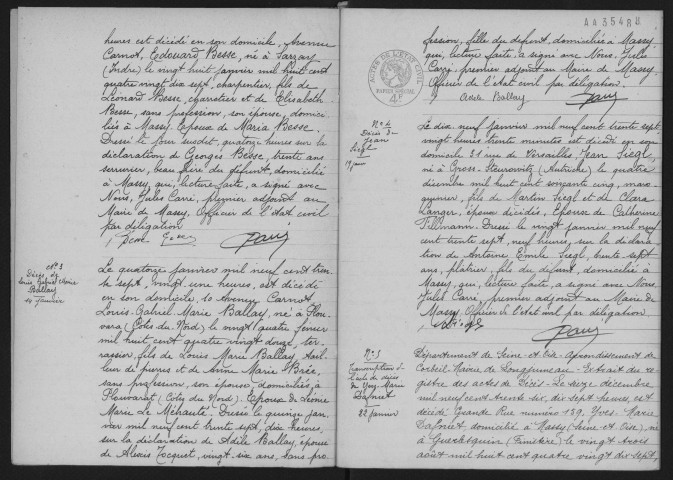 heures est décédé en son domicile, Avenue
Carnot, Edouard Besse, né à Sarzay
(Indre) le vingt huit janvier mil huit cent
quatre vingt dix sept, charpentier, fils de
Léonard Besse, charretier et de Elisabeth
Besse, sans profession, son épouse, domici-
liés à Massy. Epoux de Maria Besse.
Dressé le jour susdit, quatorze heures sur la
déclaration de Georges Besse, trente ans
serrurier, beau frère du défunt, domicilié
à Massy, qui, lecture faite, a signé avec
Nous, Jules Carré, premier adjoint au
Maire de Massy, Officier de l'état civil
par délégation.
N° 3
Décès de
Louis Gabriel Marie
Ballay
14 Janvier
Le quatorze janvier mil neuf cent tren-
te sept, vingt une heures, est décédé
en son domicile, 10 Avenue Carnot,
Louis Gabriel Marie Ballay, né à Plou-
vara (Côtes du Nord) le vingt quatre février
mil huit cent quatre vingt douze, ter-
rassier, fils de Louis Marie Ballay, tail-
leur de pierres et de Anne Marie Briée,
sans profession, son épouse, domiciliés à
Plouvarat (Côtes du Nord). Epoux de Léonie
Marie Le Méhauté. Dressé le quinze jan-
vier mil neuf cent trente sept, dix heures,
sur la déclaration de Adèle Ballay, épouse
de Alexis Jocquet, vingt-six ans, sans pro-
AA35480
fession, fille du défunt, domiciliée à Massy,
qui, lecture faite, a signé avec Nous, Jules
Carré, premier adjoint au Maire de Massy,
Officier de l'état civil par délégation.
ACTES DE L'ETAT CIVIL
PAPIER SPECIAL
4F
Adèle Ballay
N° 4
Décès de
Jean
Siegl
19 janvier
Le dix neuf janvier mil neuf cent trente sept
vingt heures trente minutes est décédé en son
domicile 31 rue de Versailles, Jean Siegl
né à Gross (Autriche) le quatre
décembre mil huit cent soixante cinq, maro-
quinier, fils de Martin Siegl et de Clara
Langer, époux décédés, Epoux de Catherine
Tillmann. Dressé le vingt janvier mil neuf
cent trente sept, neuf heures, sur la déclara-
tion de Antoine Emile Siegl, trente sept
ans, platrier, fils du défunt, domicilié à
Massy, qui, lecture faite, a signé avec Nous,
Jules Carré, premier adjoint au Maire de
Massy, Officier de l'état civil par délégation.
N° 5
Transcription de
l'acte de décès
de Yves Marie
22 janvier
Département de Seine et Oise, Arrondissement de
Corbeil Mairie de Longjumeau. Extrait du re-
gistre des actes de Décès. Le seize décembre
mil neuf cent trente six, dix sept heures, est
décédé Grande Rue numéro 139, Yves Marie
domicilié à Massy (Seine et Oise), né
à Guerlesquin (Finistère) le vingt trois
août mil huit cent quatre vingt dix sept,